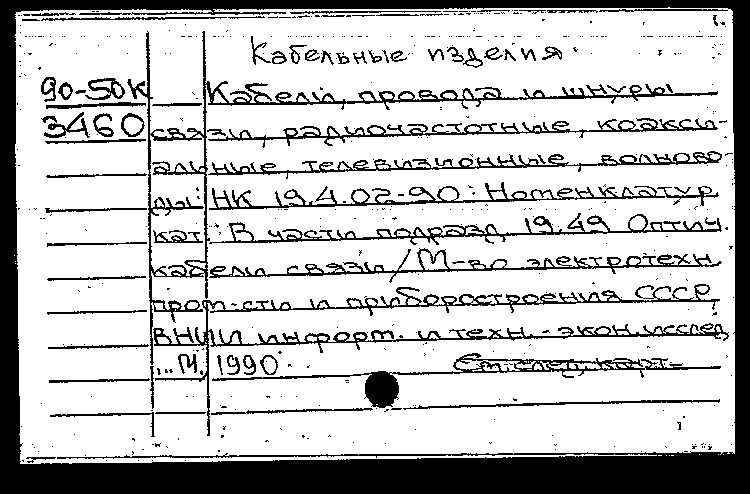 Кабельные изделия
90-50К Кабели, провода и шнуры
3460 связи, радиочастотные, коакси-
альные, телевизионные, волново-
ды: НК 19.4.02-90: Номенклатур.
кат.: В части подразд. 19.49 Оптич.
кабели связи / М-во электротехн.
пром-сти и приборостроения СССР,
ВНИИ информ. и техн.-экон. исслед.
... М., 1990
См. след. карт.